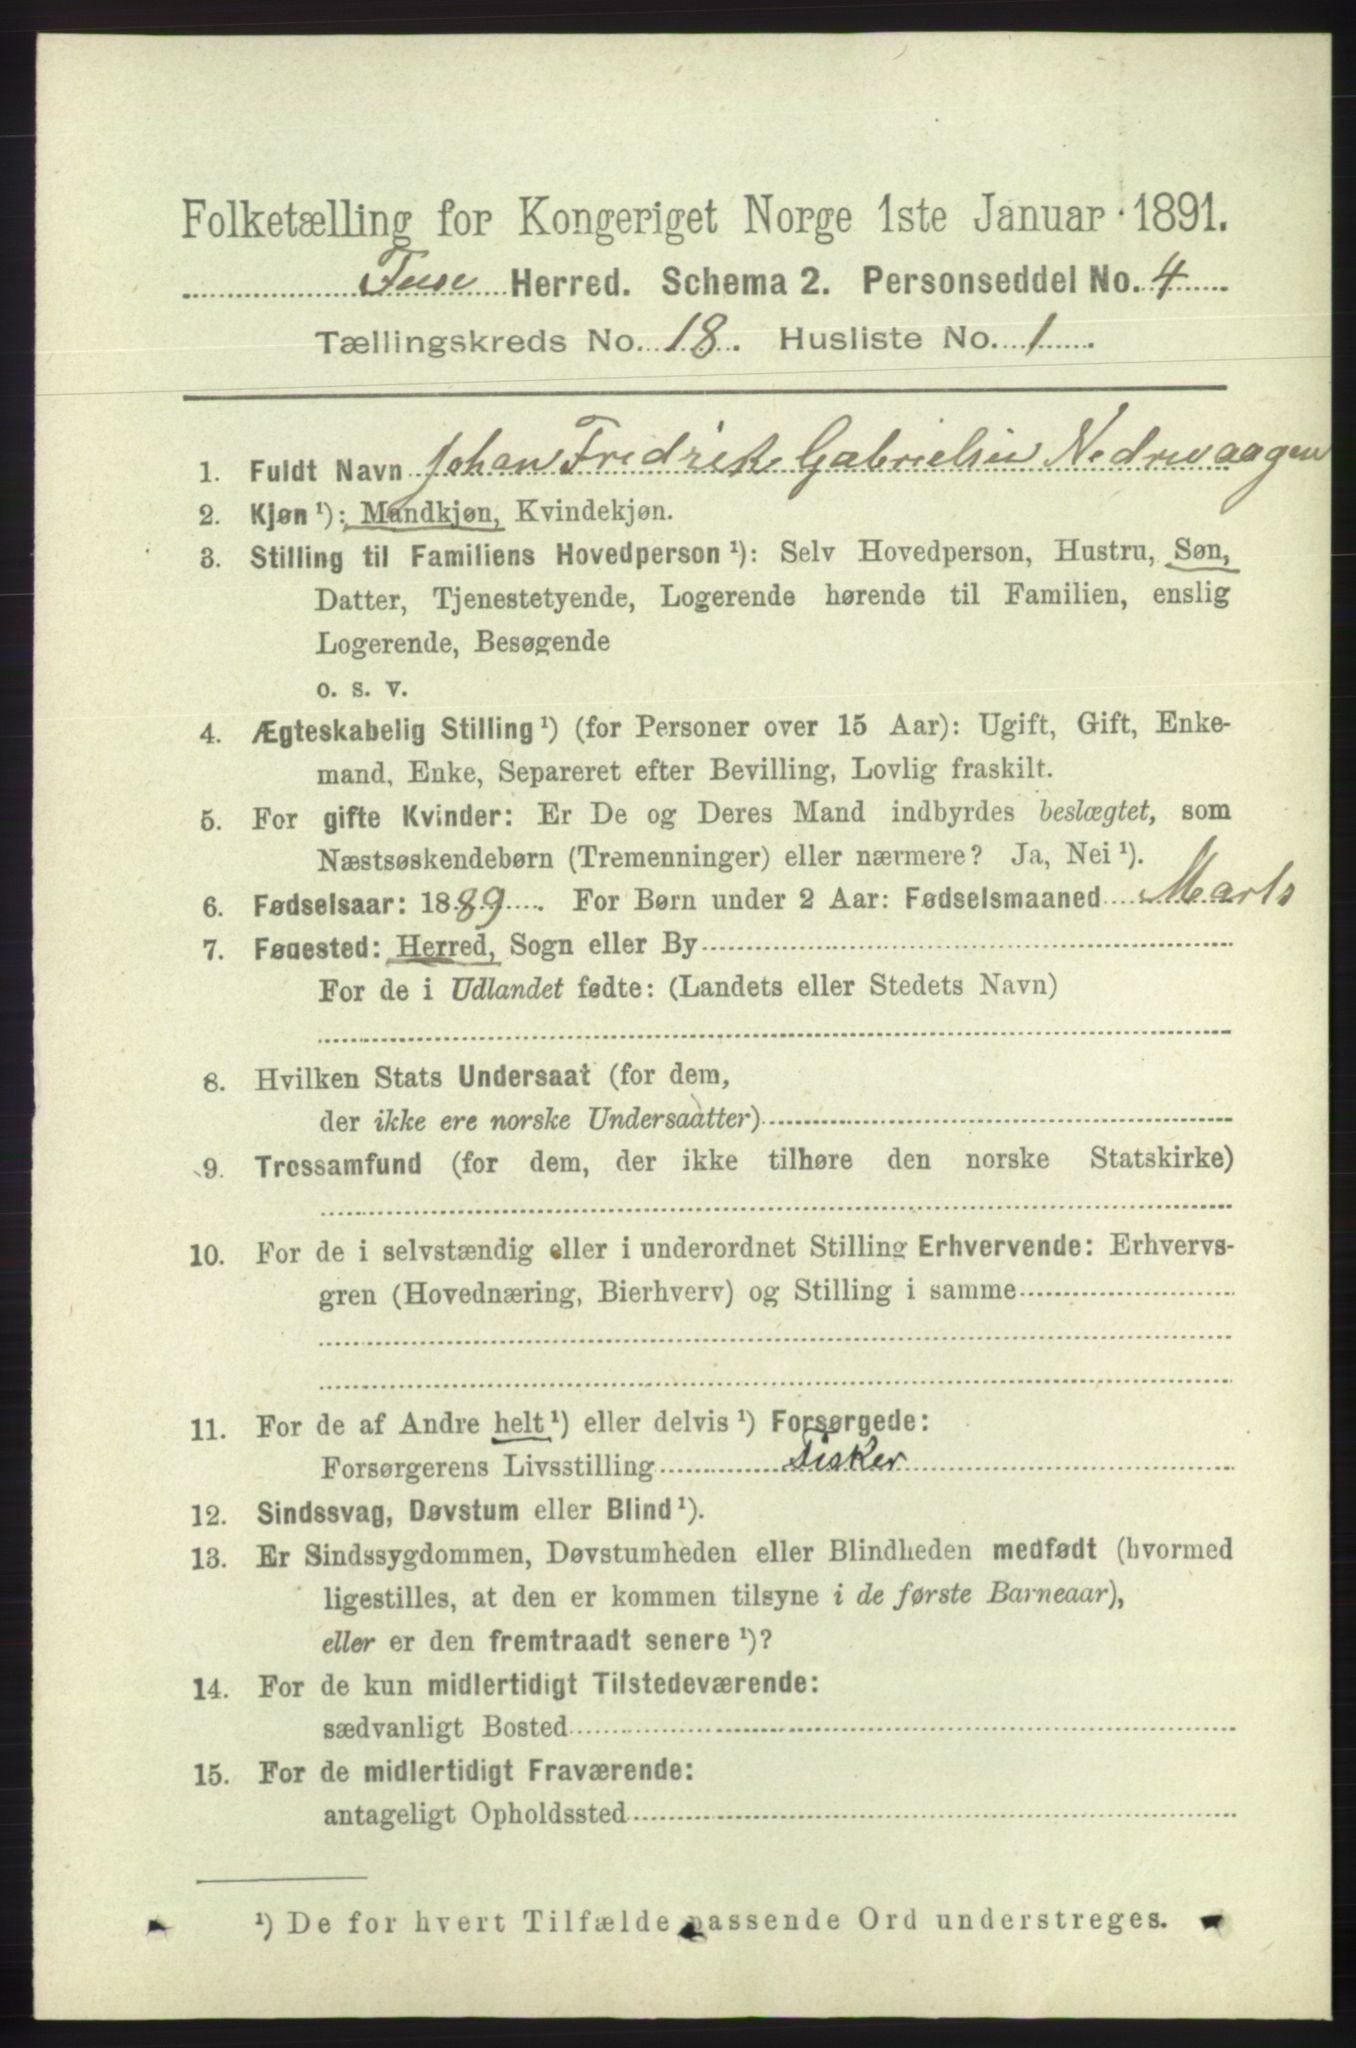 Folketælling for Kongeriget Norge 1ste Januar 1891.
Fuse Herred. Schema 2. Personseddel No. 4
Tællingskreds No. 18. Husliste No. 1
1. Fuldt Navn Johan Fredrik Gabrielsen Nedrevaagen
2. Kjøn ¹): Mandkjøn, Kvindekjøn.
3. Stilling til Familiens Hovedperson ¹): Selv Hovedperson, Hustru, Søn,
Datter, Tjenestetyende, Logerende hørende til Familien, enslig
Logerende, Besøgende
o. s. v.
4. Ægteskabelig Stilling ¹) (for Personer over 15 Aar): Ugift, Gift, Enke-
mand, Enke, Separeret efter Bevilling, Lovlig fraskilt.
5. For gifte Kvinder: Er De og Deres Mand indbyrdes beslægtet, som
Næstsøskendebørn (Tremenninger) eller nærmere? Ja, Nei ¹).
6. Fødselsaar: 1889. For Børn under 2 Aar: Fødselsmaaned Marts
7. Fødested: Herred, Sogn eller By
For de i Udlandet fødte: (Landets eller Stedets Navn)
8. Hvilken Stats Undersaat (for dem,
der ikke ere norske Undersaatter)
9. Trossamfund (for dem, der ikke tilhøre den norske Statskirke)
10. For de i selvstændig eller i underordnet Stilling Erhvervende: Erhvervs-
gren (Hovednæring, Bierhverv) og Stilling i samme
11. For de af Andre helt ¹) eller delvis ¹) Forsørgede:
Forsørgerens Livsstilling fisker
12. Sindssvag, Døvstum eller Blind ¹).
13. Er Sindssygdommen, Døvstumheden eller Blindheden medfødt (hvormed
ligestilles, at den er kommen tilsyne i de første Barneaar),
eller er den fremtraadt senere ¹)?
14. For de kun midlertidigt Tilstedeværende:
sædvanligt Bosted
15. For de midlertidigt Fraværende:
antageligt Opholdssted
¹) De for hvert Tilfælde passende Ord understreges.